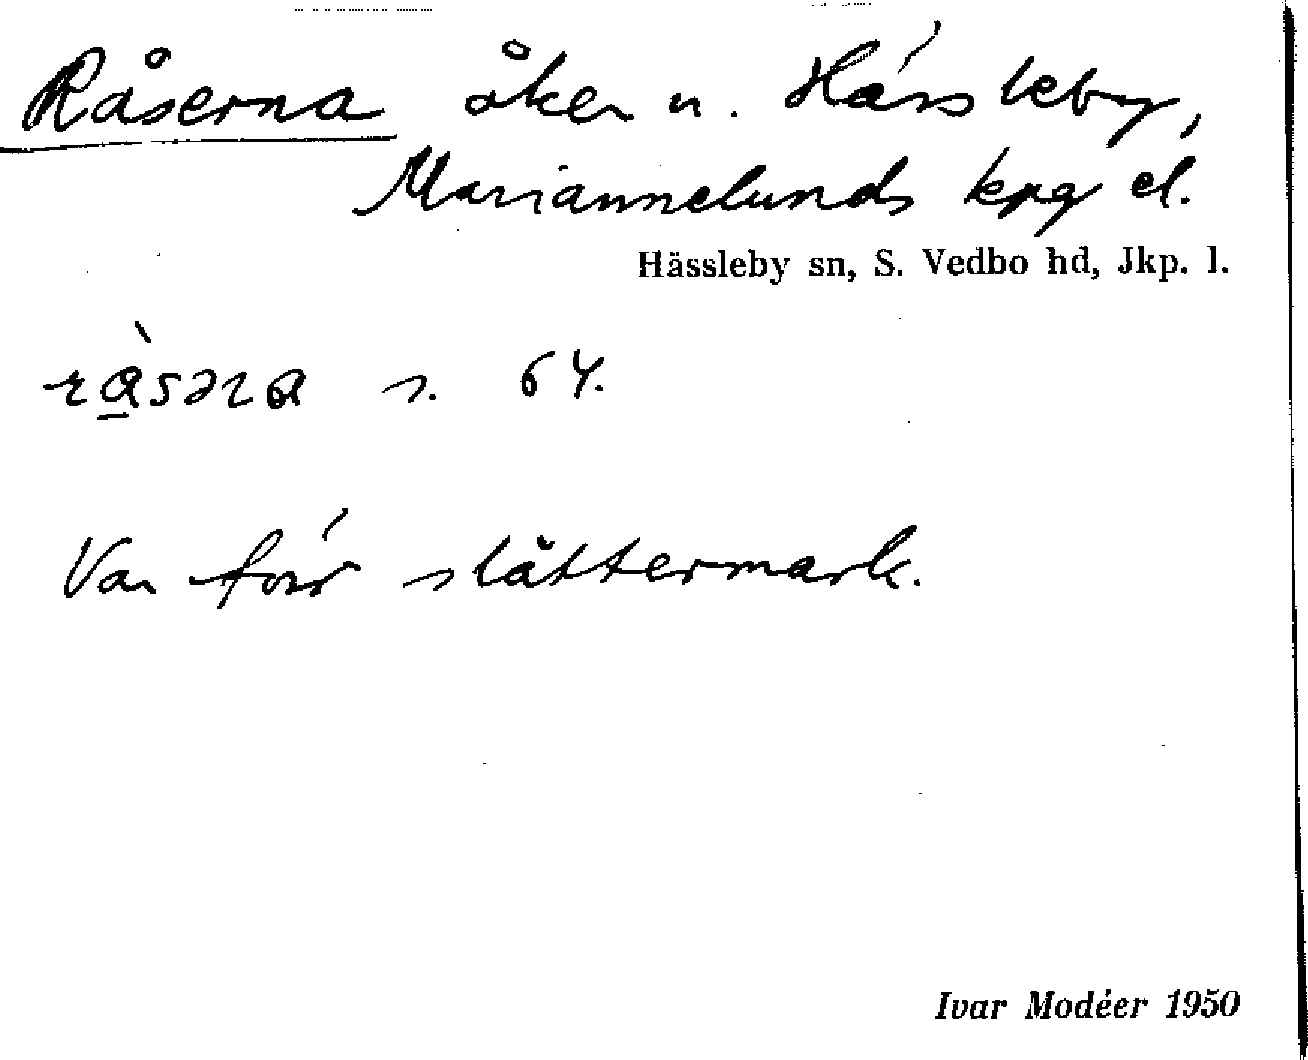 Råserna åker u. Hässleby,
Mariannelunds kpg el.
Hässleby sn, S. Vedbo hd, Jkp. l.
s. 64.
Var förr slåttermark.
Ivar Modéer 1950